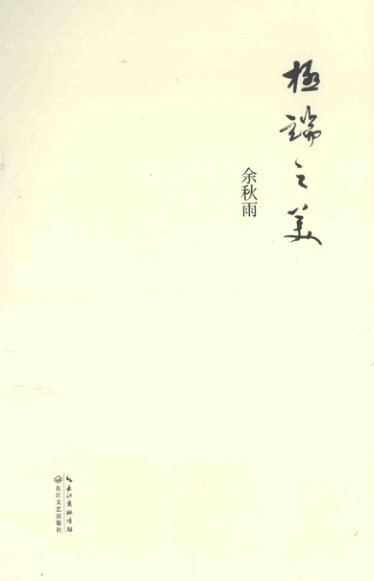 極端之美
余秋雨
长江出版传媒
长江文艺出版社